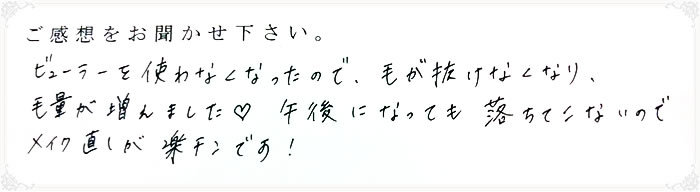 ご感想をお聞かせ下さい。
ビューラーを使わなくなったので、毛が抜けなくなり、
毛量が増えました♡ 午後になっても落ちてこないので
メイク直しが楽チンです!